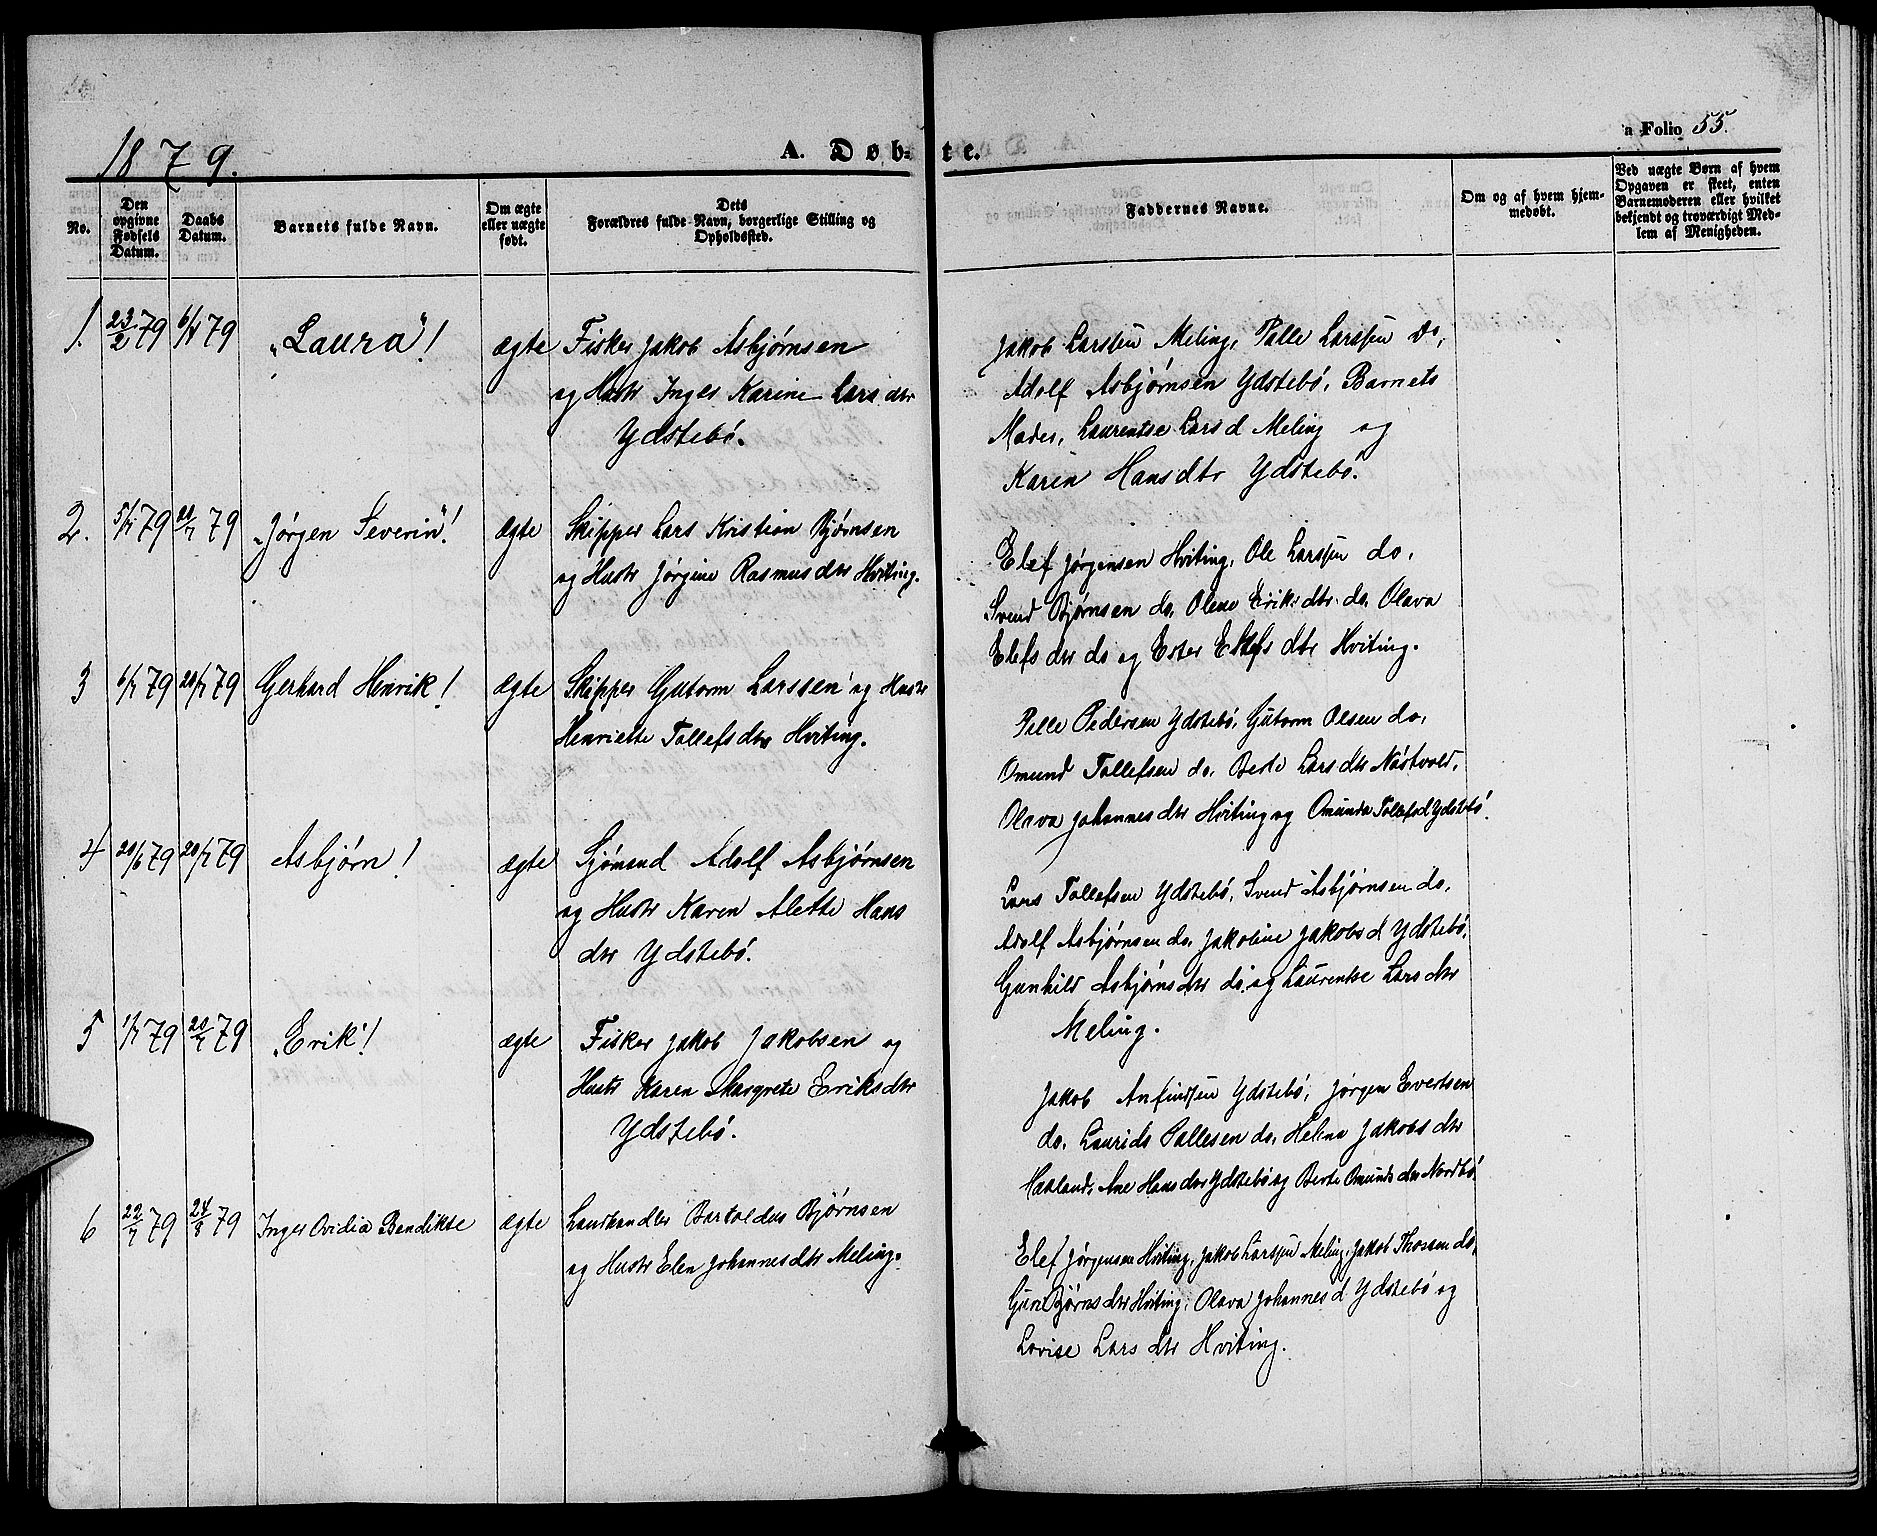 1879.
A. Døb-
te.
a Folio 55.
No.
Den opgivne Fødsels Datum.
Daabs Datum.
Barnets fulde Navn.
Om ægte eller uægte født.
Dets Forældres fulde Navn, borgerlige Stilling og Opholdssted.
Faddernes Navne.
Om og af hvem hjemmedøbt.
Ved uægte Børn af hvem Opgaven er skeet, enten Barnemoderen eller hvilket bekjendt og troværdigt Medlem af Menigheden.
1. 23/2 79 79 „Laura"! ægte Fisker Jakob Asbjørnsen
og Hustr Inger Karine Larsdtr
Ydstebö.
Jakob Larssen Meling, Palle Larssen do,
Adolf Asbjørnsen Ydstebö, Barnets
Moder, Laurentse Larsd Meling og
Karin Hansdtr Ydstebö.
2. 79 20/7 79 „Jørgen Severin"! ægte Skipper Lars Kristian Bjørnsen
og Hustr Jørgine Rasmusdtr Hviting.
Elef Jørgensen Hviting, Ole Larssen do,
Svend Bjørnsen do, Olene Eriksdtr do, Olava
Elefsdtr do og Ester Elefsdtr Hviting.
3 6/7 79 20/7 79 Gerhard Henrik! ægte Skipper Gutorm Larssen og Hustr
Henriette Tollefsdtr Hviting.
Pelle Pedersen Ydstebö, Gutorm Olsen do,
Omund Tollefsen do, Berte Larsdtr Nästvold,
Olava Johannesdtr Hviting og Omunda Tollefsd Ydstebö.
4 20/6 79 20/7 79 Asbjørn! ægte Sjömand Adolf Asbjørnsen
og Hustr Karen Alette Hans
dtr Ydstebö.
Lars Tollefsen Ydstebö, Svend Asbjørnsen do,
Adolf Asbjørnsen do, Jakoline Jakobsd Ydstebö,
Gunhild Asbjørnsdtr do, og Laurentse Larsdtr
Meling.
5 1/7 79 20/7 79 „Erik"! ægte Fisker Jakob Jakobsen og
Hustr Karen Margrete Eriksdtr
Ydstebö.
Jakob Anfindsen Ydstebö, Jørgen Evertsen
do, Laurids Pallesen do, Helene Jakobsdtr
Haaland, Ane Hansdtr Ydstebö og Berte Omundsdtr Nordbö.
6 22/7 79 24/8 79 Inger Ovidia Bendikte ægte Landhandler Bartoldus Bjørnsen
og Hustr Elen Johannesdtr Meling.
Elef Jørgensen Hviting, Jakob Larssen Meling, Jakob Thorsen do,
Guri Bjørnsdtr Hviting, Olava Johannesd Ydstebö og
Lovise Larsdtr Hviting.